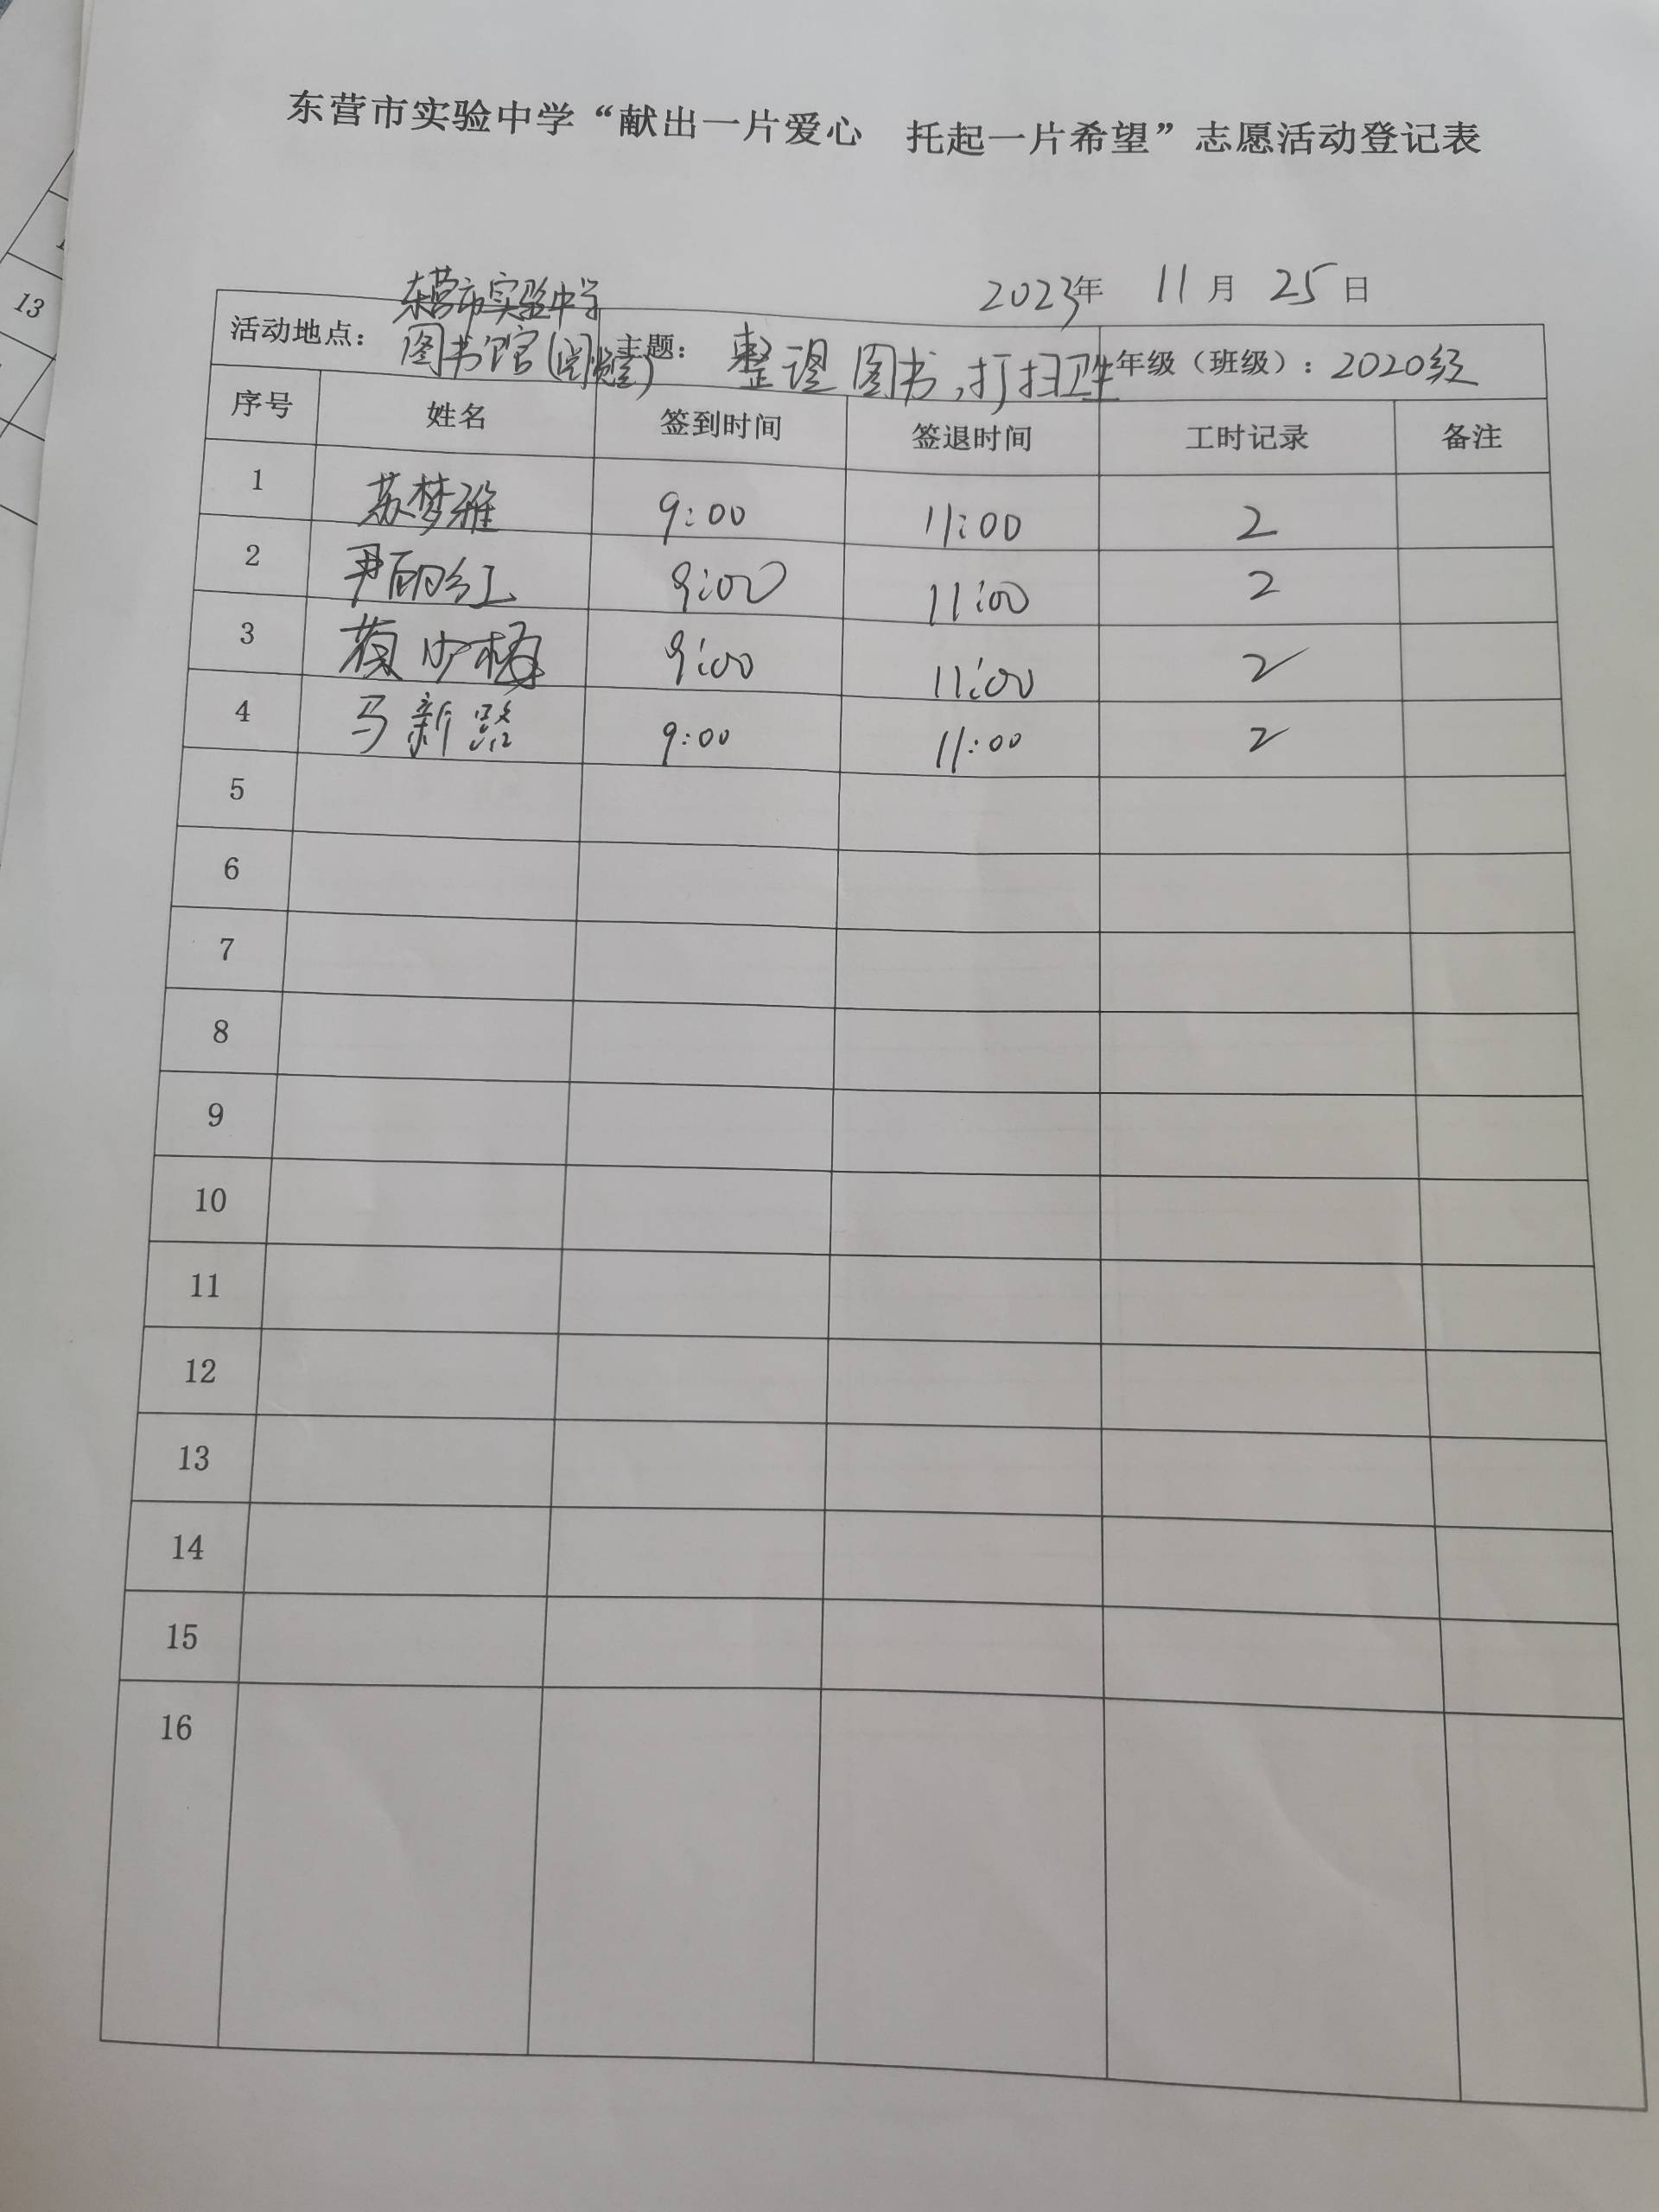 东营市实验中学“献出一片爱心 托起一片希望”志愿活动登记表
2023年 11月 25日
活动地点：东营市实验中学图书馆(阅览室) 主题：整理图书，打扫卫生 年级（班级）：2020级
序号 姓名 签到时间 签退时间 工时记录 备注
1 苏梦雅 9:00 11:00 2
2 尹丽红 9:00 11:00 2
3 9:00 11:00 2
4 马新路 9:00 11:00 2
5
6
7
8
9
10
11
12
13
14
15
16
13